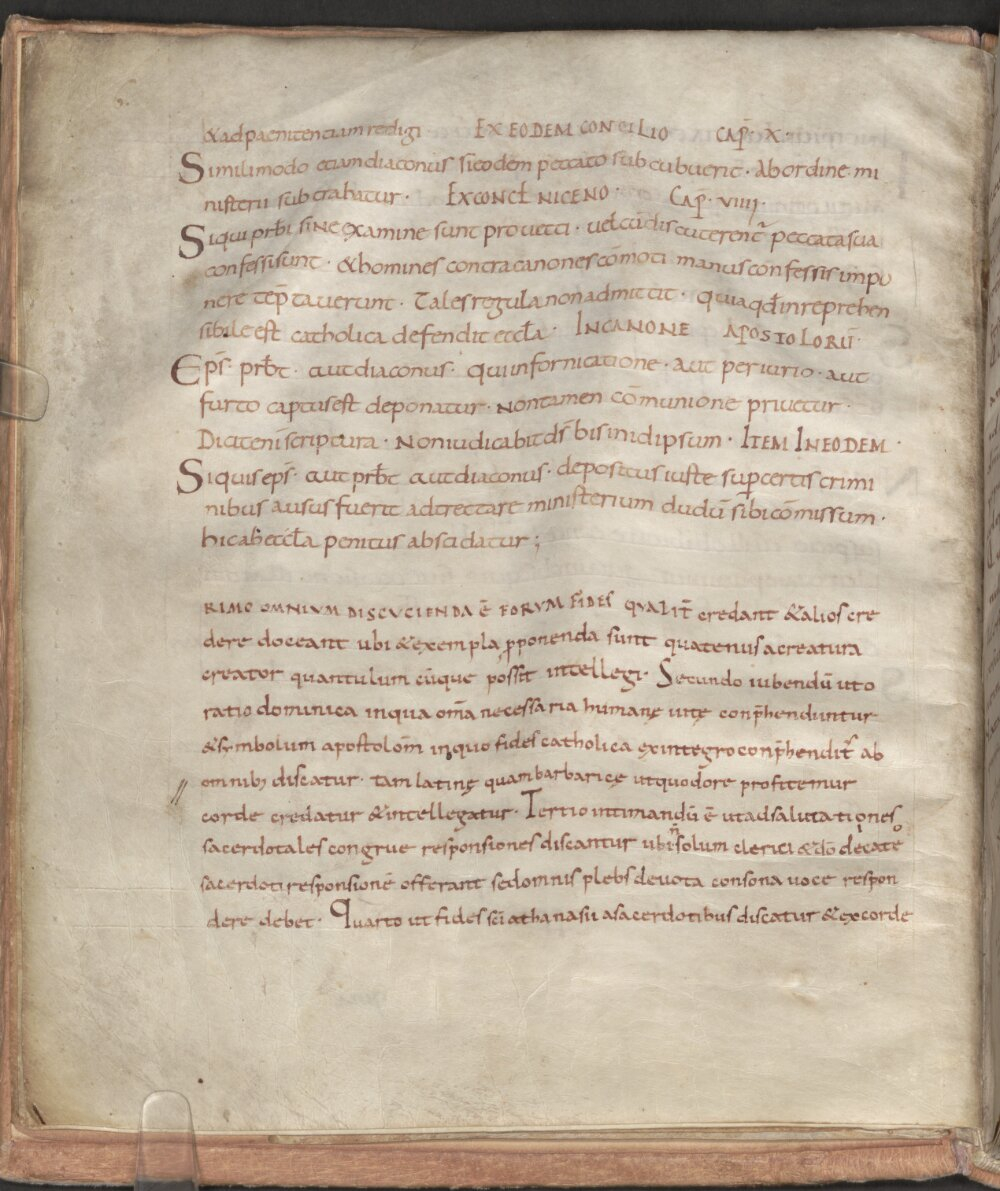 &adpaenitentiam redigi EX EODEM CONCILIO CAP̄. X.
Similimodo etiam diaconus si eodem peccato subcubuerit. Abordine mi
nisterii subtrahatur. EX CONCŁ NICENO. CAP̄. VIIII.
Siqui prƀi sine examine sunt provecti. vel cū discuterent̄ peccata sua
confessi sunt. & homines contra canones cōmoti manus confessis impo
nere temptaverunt. Tales regula non admittit. quia qđ inreprehen
sibile est catholica defendit eccła. IN CANONE APOSTOLORŪ.
Ep̄s. prƀt. aut diaconus. qui in fornicatione. aut periurio. aut
furto captus est deponatur. Non tamen cōmunione privetur.
Dicit enī scriptura. Non iudicabit dŝ bis in id ipsum. ITEM IN EODEM.
Siquis ep̄s. aut prƀt aut diaconus. depositus iuste sup̄ certis crimi
nibus ausus fuerit adtrectare ministerium dudū sibi cōmissum.
hic ab eccła penitus abscidatur;
RIMO OMNIVM DISCVCIENDA Ē FORVM FIDES QVALIT̄ credant & alios cre
dere doceant ubi & exempla p̱ponenda sunt quatenus a creatura
creator quantulum cūque possit intellegi. Secundo iubendū ut o
ratio dominica in qua om̄a necessaria humanę vitę conp̄henduntur
& symbolum apostolom̄ in quo fides catholica ex integro conp̄hendit̄ ab
omnib; discatur. tam latine quam barbaricę ut quod ore profitemur
corde credatur & intellegatur. Tertio intimandū ē ut ad salutationes
sacerdotales congrue responsiones discantur ubi n̄ solum clerici & dō dęcatę
sacerdoti responsionē offerant sed omnis plebs devota consona voce respon
dere debet. Quarto ut fides sc̄i athanasii a sacerdotibus discatur & ex corde